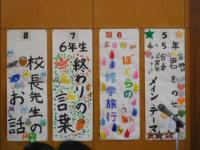 8
校長先生の
お話
7
6年生
終わりの
言葉
6
ぼくらの
修学旅行
5
4・5年
メインテーマ